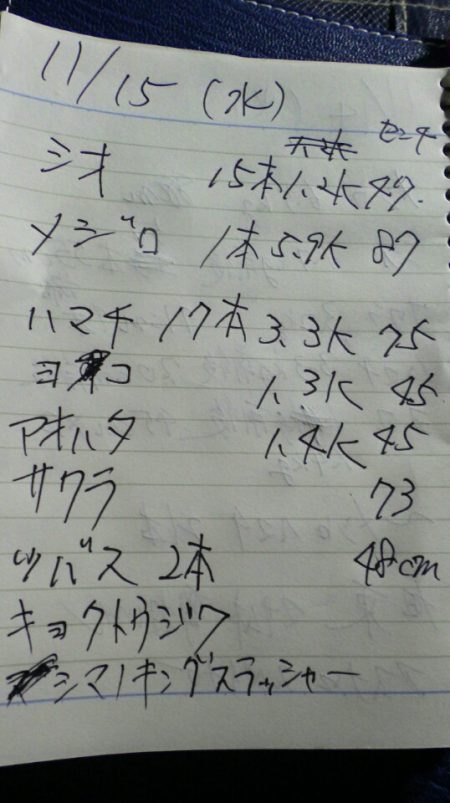 11/15 (水)
センチ
シオ 15本 1.2K 47.
メジロ 1本 5.9K 87
ハマチ 17本 3.3K 75
ヨコ 1.3K 45
アオハタ 1.4K 45
サクラ 73
ツバス 2本 48cm
キョクトウジク
シマノキングスラッシャー